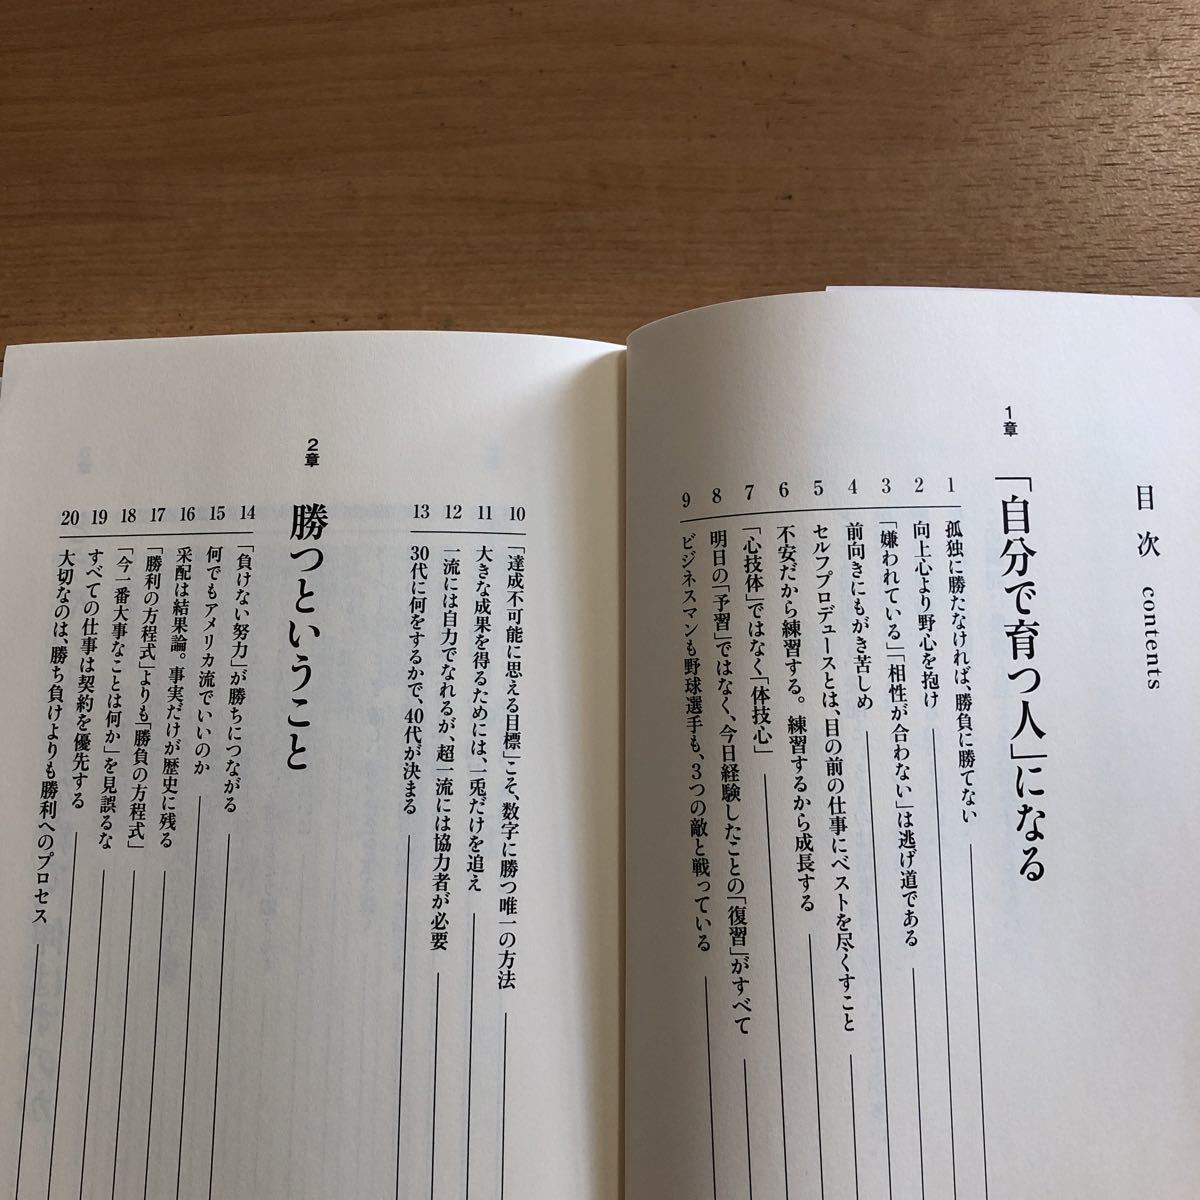 目次 contents
1章 「自分で育つ人」になる
1 孤独に勝たなければ、勝負に勝てない
2 向上心より野心を抱け
3 「嫌われている」「相性が合わない」は逃げ道である
4 前向きにもがき苦しめ
5 セルフプロデュースとは、目の前の仕事にベストを尽くすこと
6 不安だから練習する。練習するから成長する
7 「心技体」ではなく「体技心」
8 明日の「予習」ではなく、今日経験したことの「復習」がすべて
9 ビジネスマンも野球選手も、3つの敵と戦っている
10 「達成不可能に思える目標」こそ、数字に勝つ唯一の方法
11 大きな成果を得るためには、一兎だけを追え
12 一流には自力でなれるが、超一流には協力者が必要
13 30代に何をするかで、40代が決まる
2章 勝つということ
14 「負けない努力」が勝ちにつながる
15 何でもアメリカ流でいいのか
16 采配は結果論。事実だけが歴史に残る
17 「勝利の方程式」よりも「勝負の方程式」
18 「今一番大事なことは何か」を見誤るな
19 すべての仕事は契約を優先する
20 大切なのは、勝ち負けよりも勝利へのプロセス